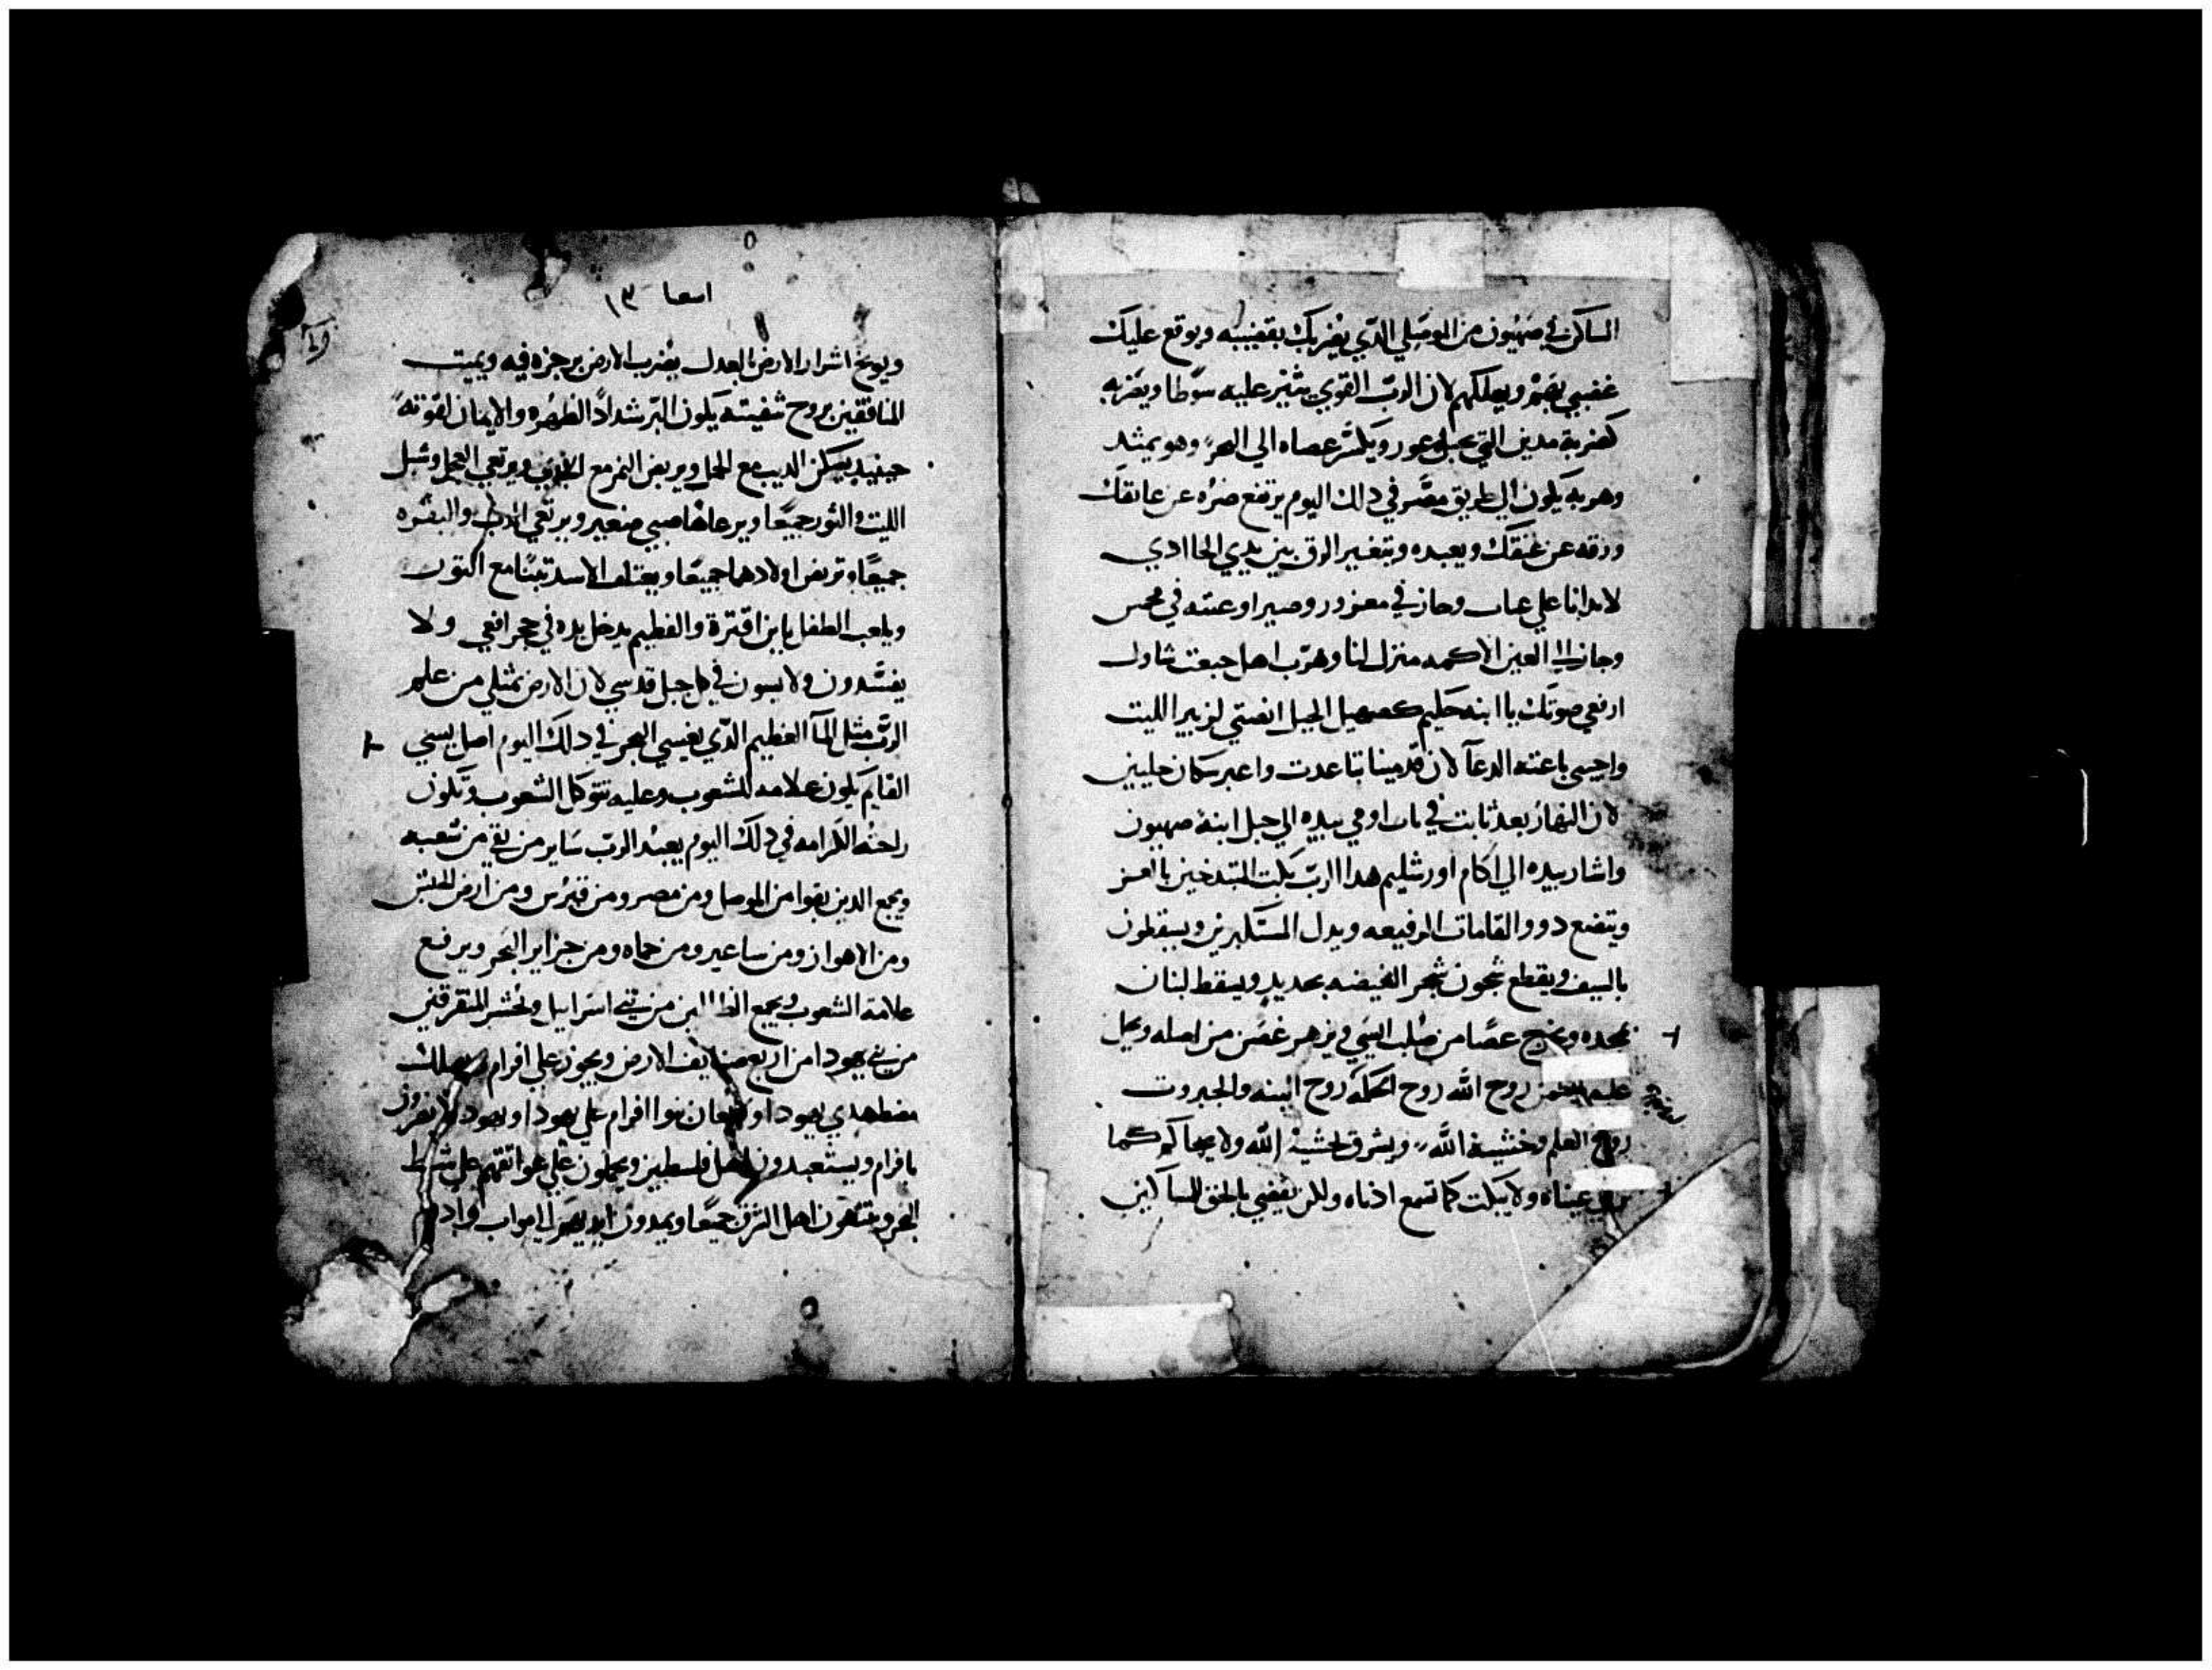 الساكن في صهيون من الموصلي الدي يضربك بقضيبه ويوقع عليك
غضبي بضر ويهلكهم لان الرب القوي يثير عليه سوطا ويضربه
كضربة مدين التي بجبل حور ويكسر عصاه الي البحر وهو يمتد
وهو به يكون الي طريق مصر في دالك اليوم يرتفع ضره عن عاتقك
ورقه عن عنقك ويعبده ويتغير الرق بين يدي
لانه اتا علي عيات وجاز في معزور وصير اوعيته في محمس
وجاز العين الاكمه منزل لنا وهرب اهل جبعت شاول
ارفعي صوتك يا ابنه حليم كصهيل الخيل انصتي لزير الليت
واجيبي يا عنه الدعا لان مدمينا تباعدت واعبر سكان جليبين
لان النهار بعد تابت في ناب اومي بيده الي جبل ابنة صهيون
واشار بيده الي اكام اورشليم هدا الرب يكبت المتبدخين بالعز
ويتضع دوو القامات الرفيعه ويدل المستكبرين ويسقطون
بالسيف ويقطع شجون شجر الغيضه بحديد ويسقط لبنان
بمجده ويخرج عصا من صلب ايسي ويزهر غصن من اصله ويحل
عليه روح الله روح الحكمه روح البينه والجبروت
روح العلم وخشية الله ويشرق بخشية الله ولا يحاكم كما
تري عيناه ولا يبكت كما تسمع ادناه ولكن يقضي بالحق للمساكين
اسعيا ١٣
ويوبخ اشرار الارض بالعدل يضرب الارض برجزه فيه ويميت
المنافقين بروح شفيته يكون البر شدادا لظهره والايمان لقوته
حينيد يسكن الديب مع الحمل ويربض النمر مع الجدي ويرتعي العجل وشبل
الليت والثور جميعا ويرعاها صبي صغير ويرتعي الدب والبقره
جميعا وتربض اولادهما جميعا ويعتلف الاسد تبنا مع الثور
ويلعب الطفل بابن اقترة والفطيم يدخل يده في حجر افعي ولا
يفسدون ولا يسون في كل جبل قدسي لان الارض تمتلي من علم
الرب مثل الما العظيم الدي يغشي البحر في دلك اليوم اصل يسي
القايم يكون علامه للشعوب وعليه تتوكل الشعوب وتكون
راحته الكرامه في دلك اليوم يعبد الرب ساير من بقي من شعبه
ويجمع الدين بقوا من الموصل ومن مصر ومن قبرس ومن ارض الحبش
ومن الاهواز ومن ساعير ومن حماه ومن جزاير البحر ويرفع
علامة الشعوب ويجمع الظالين من بني اسراييل ويحشر المتفرقين
من بني يهودا من اربع الارض ويجوز علي افرام ويهلك
مضطهدي يهودا افرام علي يهودا ويهودا لا
بافرام ويستعبدون اهل فلسطين ويحملون علي عواتقهم علي شط
البحر وينتهون اهل الشرق جميعا ويمدون ايديهم الي مواب